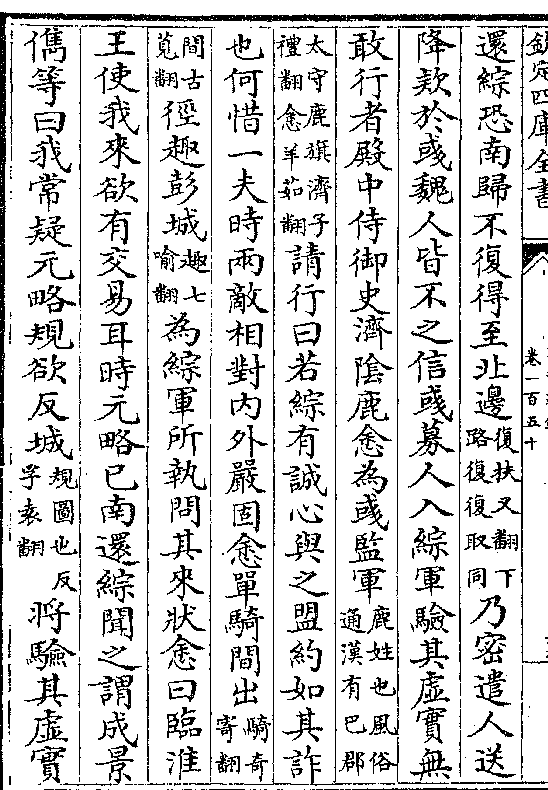 欽定四庫全書
卷一百五十
還綜恐南歸不復得至北邊復扶又翻下路復復取同乃密遣人送
降欵於彧魏人皆不之信彧募人入綜軍驗其虛實無
敢行者殿中侍御史濟陰鹿悆為彧監軍鹿姓也風俗通漢有巴郡
太守鹿旗濟子禮翻悆羊茹翻請行曰若綜有誠心與之盟約如其詐
也何惜一夫時兩敵相對内外嚴固悆單騎間出騎奇寄翻
間古莧翻徑趣彭城趣七喻翻為綜軍所執問其來狀悆曰臨淮
王使我來欲有交易耳時元略已南還綜聞之謂成景
儁等曰我常疑元略規欲反城規圖也反孚袁翻將驗其虛實